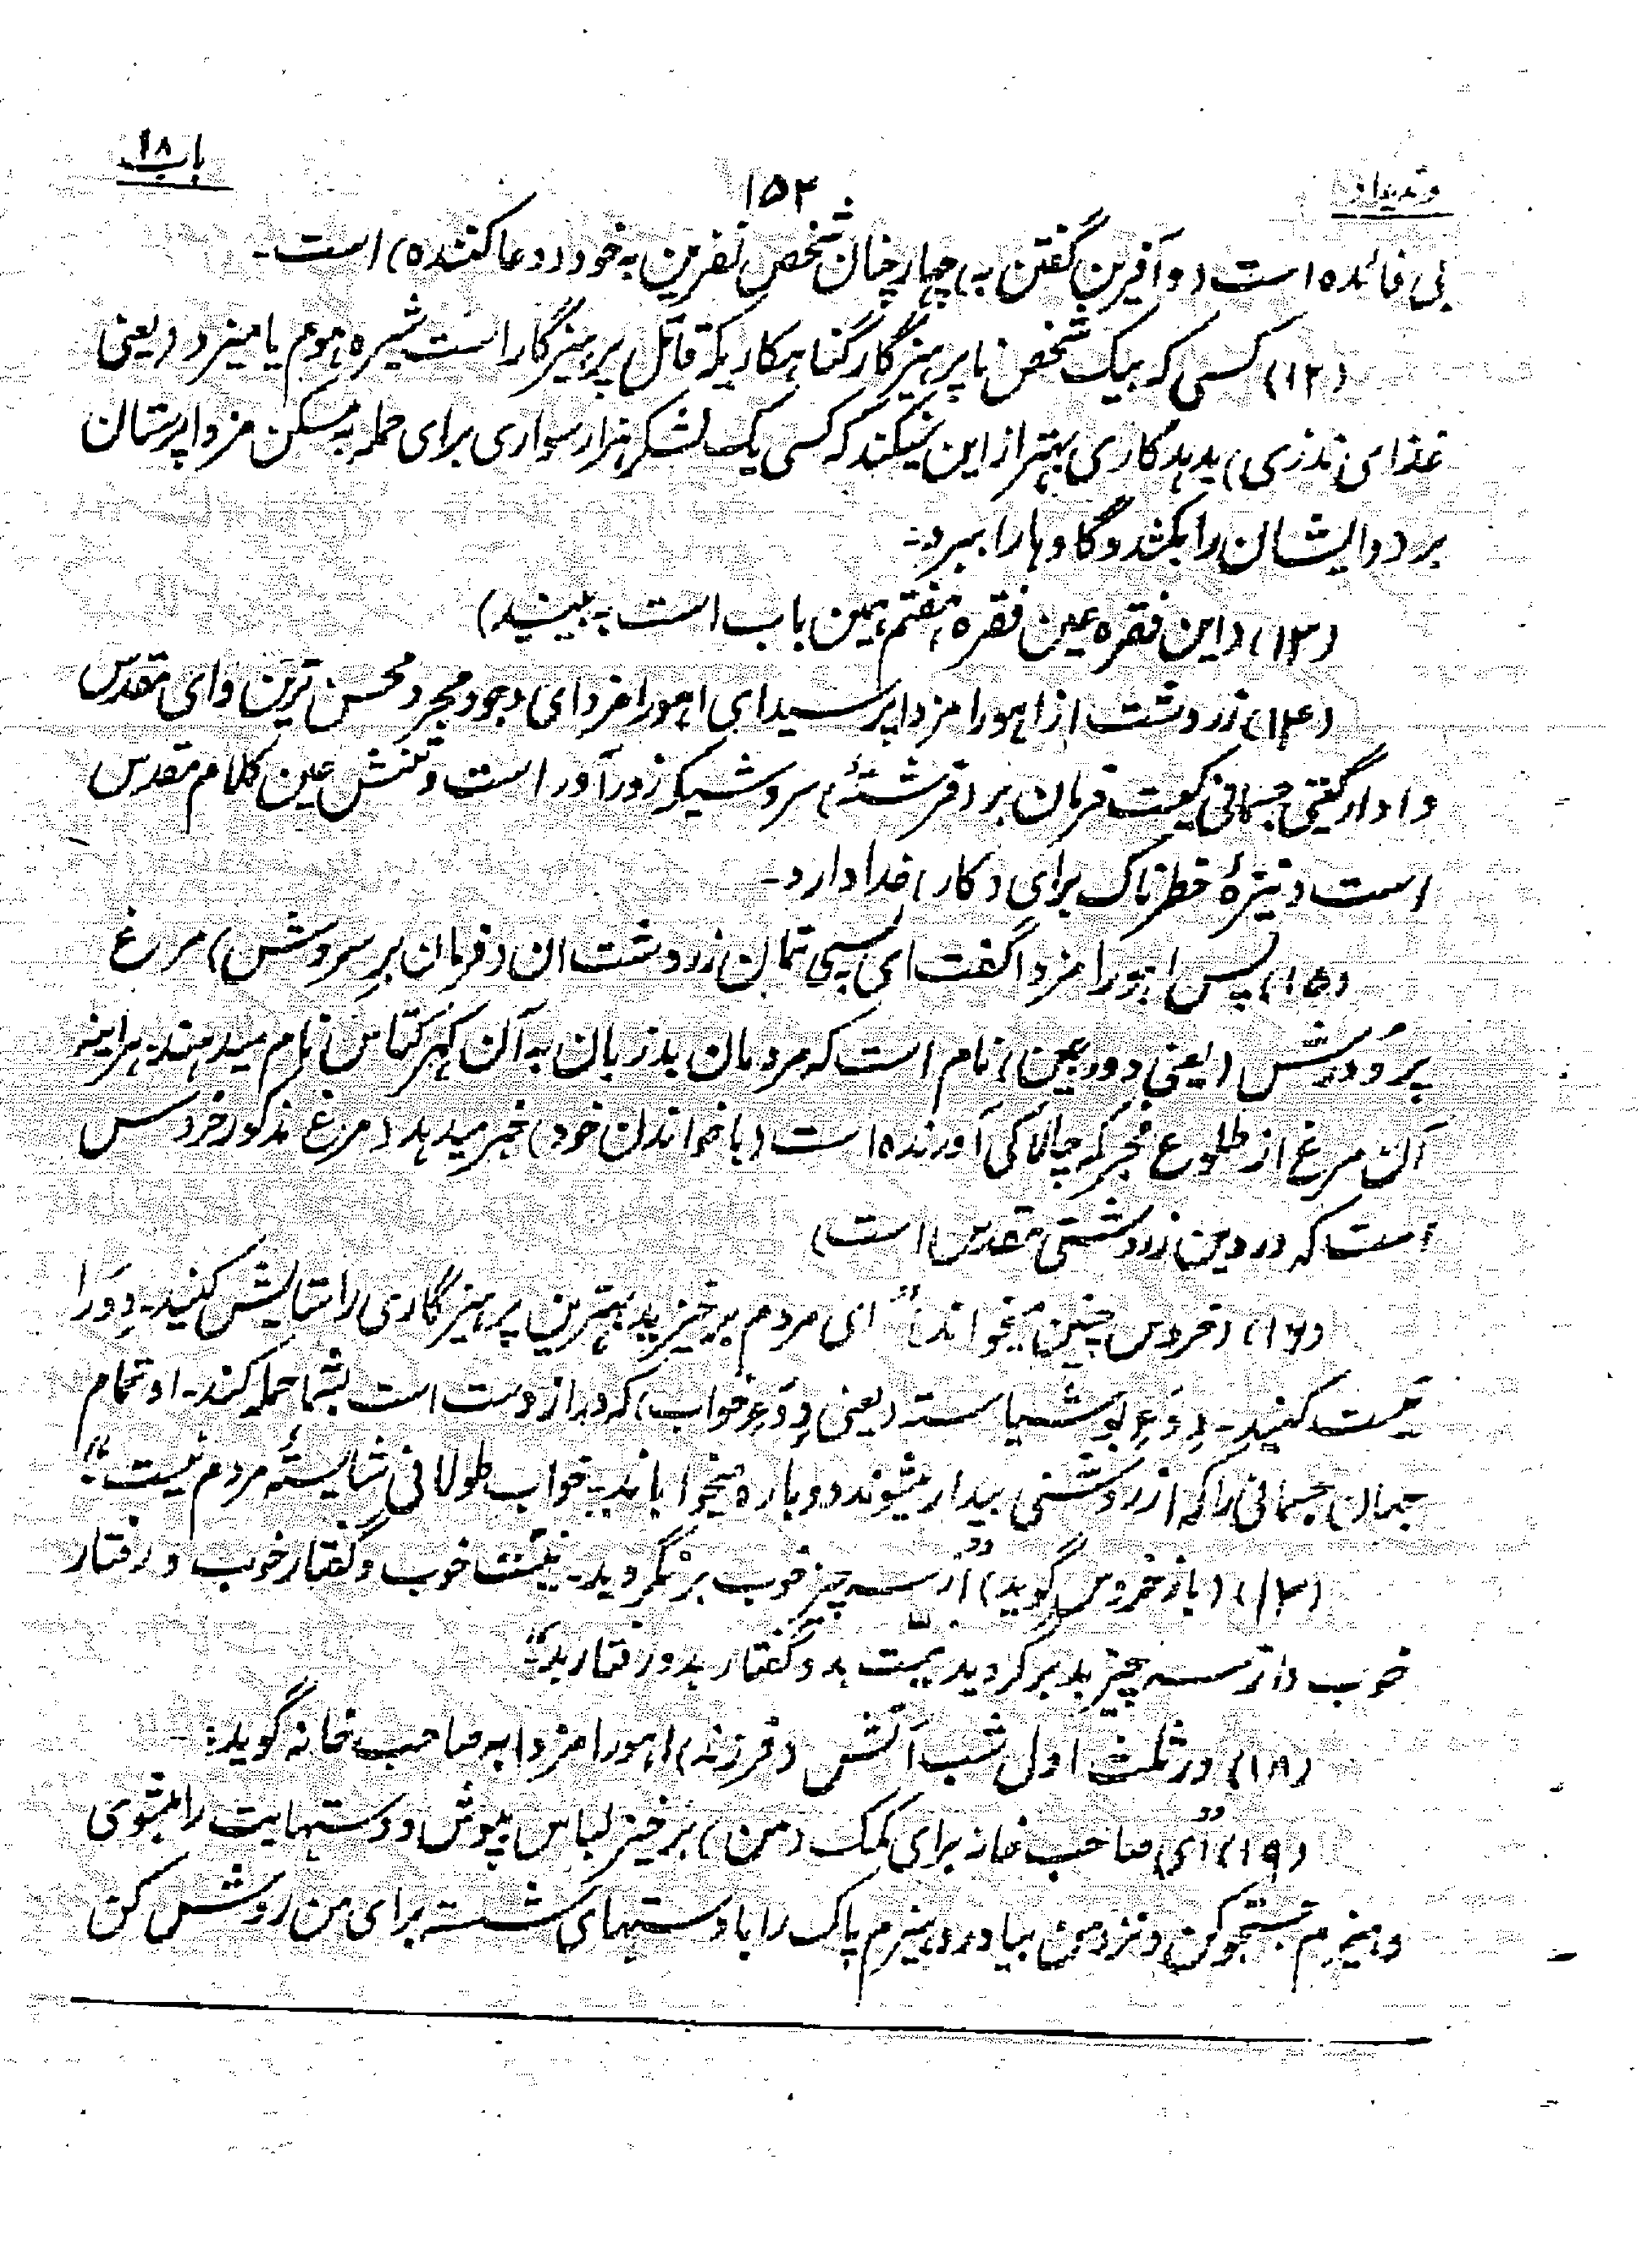 وندیداد
۱۵۲
باب ۱۸
بی فائده است (و آفرین گفتن به) چهار چنان شخص نفرین به خود (دعا کننده) است -
(۱۲) کسی که بیک شخص ناپرهیزگار گناهکاریکه قاتل پرهیزگار است شیره هوم یا میزد (یعنی
غذای نذری) بدهد کاری بهتر از این نمیکند که کسی یک لشکر هزار سواری برای حمله به مسکن مزداپرستان
برد و ایشان را بکشد و گاوها را ببرد -
(۱۳) (این فقره عین فقره هفتم همین باب است به بینید)
(۱۴) زردشت از اهورامزدا پرسید ای اهورامزدا ای وجود مجرد محسن ترین و ای مقدس
دادار گیتی جسمانی کیست فرمان بر (فرشتهٔ) سروشیکه زورآور است و تنش عین کلام مقدس
است و نیزهٔ خطرناک برای (کار) خدا دارد -
(۱۵) پس اهورامزدا گفت ای سپی تمان زردشت آن (فرمان بر سروش) مرغ
پرودرش (یعنی دوربین) نام است که مردمان بدزبان به آن کهرکتاس نام میدهند. هراینه
آن مرغ از طلوع فجر که چالاکی آورنده است (با خواندن خود) خبر میدهد (مرغ مذکور خروس
است که در دین زردشتی مقدس است)
(۱۶) (خروس چنین میخواند) "ای مردم برخیزید بهترین پرهیزگاری را ستایش کنید - دِوَ را
نیست کنید - دِوَءِ بوشیاسته (یعنی دِوَءِ خواب) که دراز دست است بشما حمله کند - او تمام
جهان جسمانی را که از روشنی بیدار میشوند دوباره میخواباند به خواب طولانی شایستهٔ مردم نیست"
(۱۷) (باز خروس گوید) "از سه چیز خوب برنگردید - نیت خوب و گفتار خوب و رفتار
خوب و از سه چیز بد برگردید نیت بد و گفتار بد و رفتار بد"
(۱۸) در ثلث اول شب آتش (فرزند) اهورامزدا به صاحب خانه گوید:
(۱۹) "ای صاحب خانه برای کمک (من) برخیز لباس بپوش و دستهایت را بشوی
و هیزم جستجو کن و نزد من بیاور و هیزم پاک را با دستهای شسته برای من روشن کن